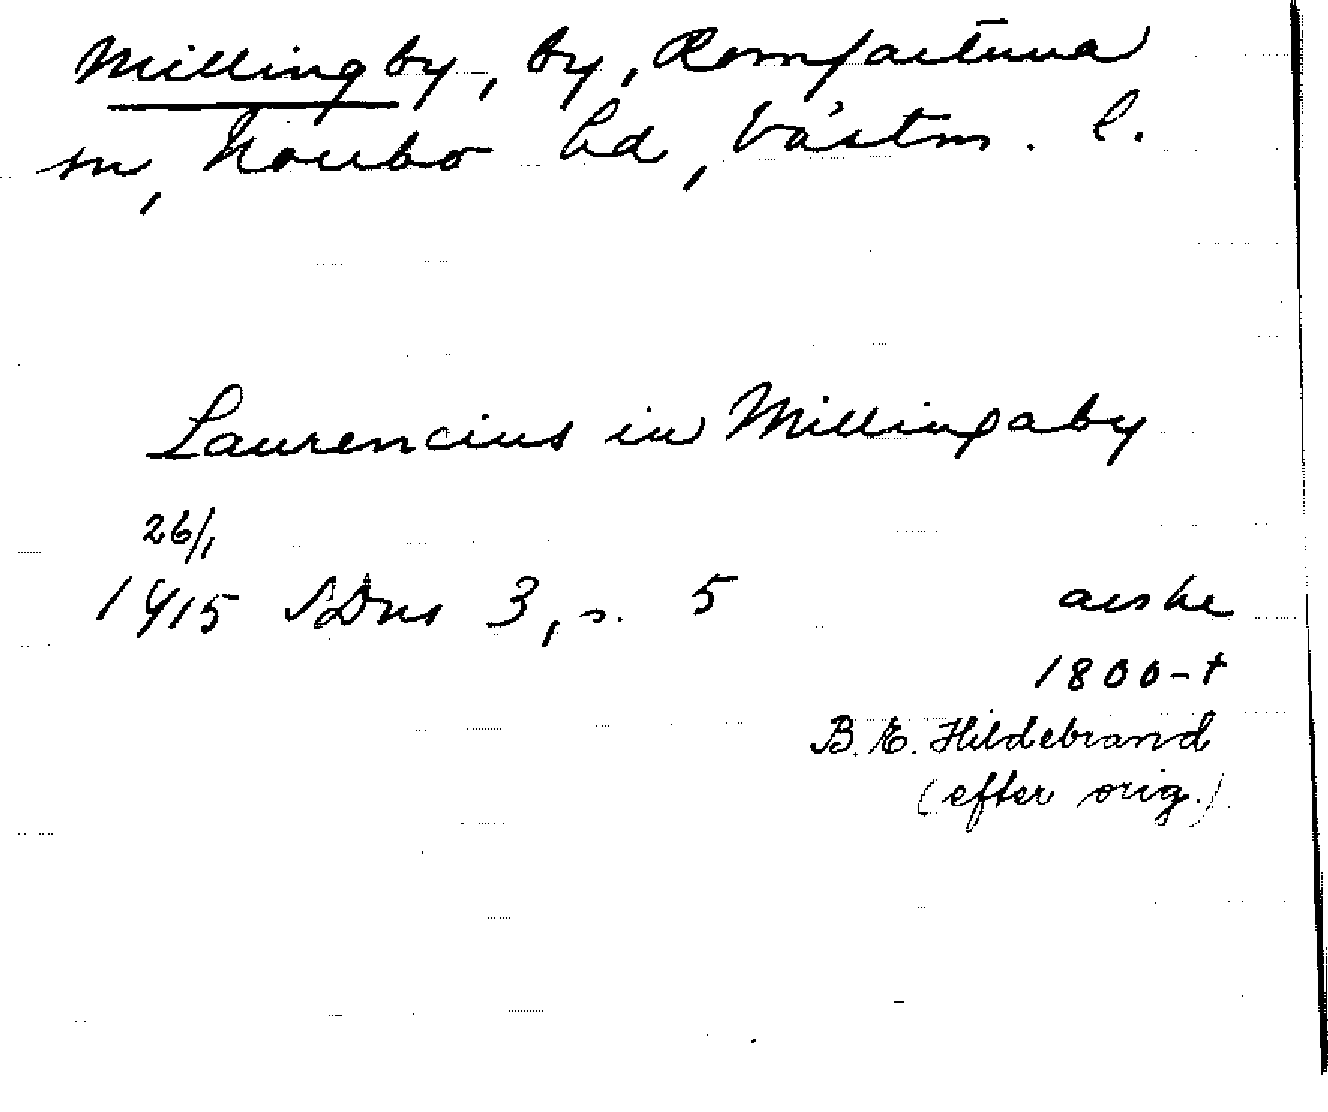 Millingby, by, Romfartuna
sn, Norrbo hd, Västm. l.
Laurencius in Millingaby
26/1
1415 SDns 3, s. 5
avskr
1800-t
B. E. Hildebrand
(efter orig.)